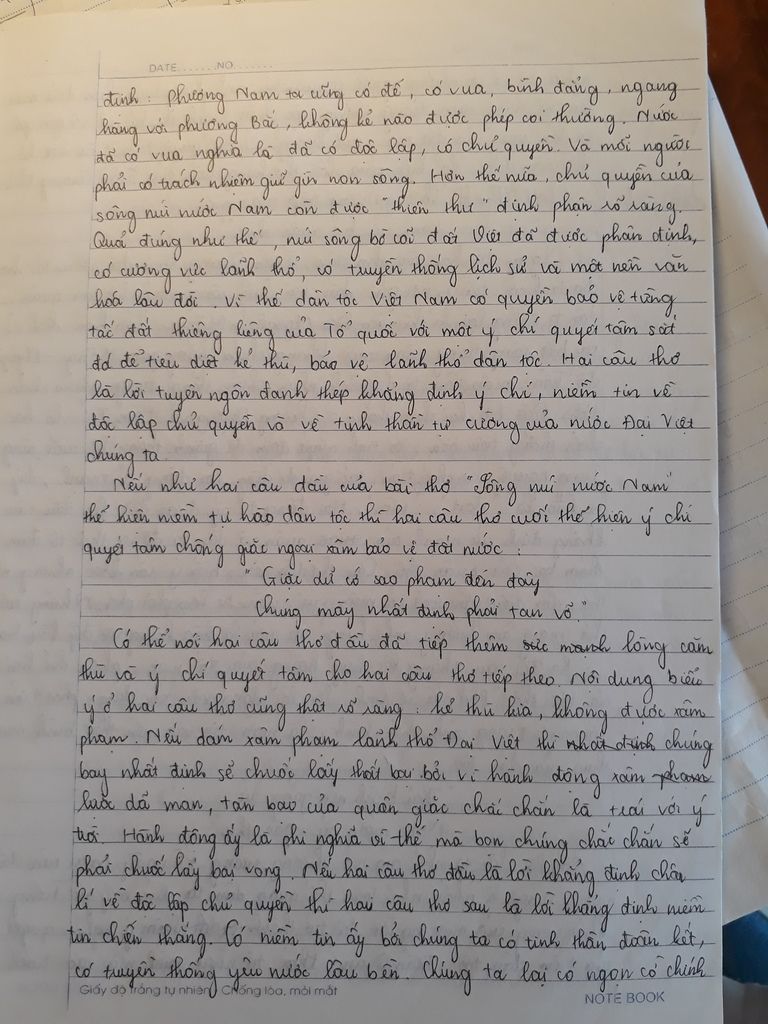 DATE........NO........
định: phương Nam ta cũng có đế, có vua, bình đẳng, ngang
hàng với phương Bắc, không kẻ nào được phép coi thường. Nước
đã có vua nghĩa là đã có độc lập, có chủ quyền. Và mỗi người
phải có trách nhiệm giữ gìn non sông. Hơn thế nữa, chủ quyền của
sông núi nước Nam còn được "thiên thư" định phận rõ ràng.
Quả đúng như thế, núi sông bờ cõi đất Việt đã được phân định,
có cương vực lãnh thổ, có truyền thống lịch sử và một nền văn
hoá lâu đời. Vì thế dân tộc Việt Nam có quyền bảo vệ từng
tấc đất thiêng liêng của Tổ quốc với một ý chí quyết tâm sắt
đá để tiêu diệt kẻ thù, bảo vệ lãnh thổ dân tộc. Hai câu thơ
là lời tuyên ngôn đanh thép khẳng định ý chí, niềm tin về
độc lập chủ quyền và về tinh thần tự cường của nước Đại Việt
chúng ta.
Nếu như hai câu đầu của bài thơ "Sông núi nước Nam"
thể hiện niềm tự hào dân tộc thì hai câu thơ cuối thể hiện ý chí
quyết tâm chống giặc ngoại xâm bảo vệ đất nước:
"Giặc dữ cớ sao phạm đến đây
Chúng mày nhất định phải tan vỡ."
Có thể nói hai câu thơ đầu đã tiếp thêm sức mạnh lòng căm
thù và ý chí quyết tâm cho hai câu thơ tiếp theo. Nội dung biểu
ý ở hai câu thơ cũng thật rõ ràng: kẻ thù kia, không được xâm
phạm. Nếu dám xâm phạm lãnh thổ Đại Việt thì nhất định chúng
bay nhất định sẽ chuốc lấy thất bại bởi vì hành động xâm phạm
lược dã man, tàn bạo của quân giặc chắc chắn là trái với ý
trời. Hành động ấy là phi nghĩa vì thế mà bọn chúng chắc chắn sẽ
phải chuốc lấy bại vong. Nếu hai câu thơ đầu là lời khẳng định chân
lí về độc lập chủ quyền thì hai câu thơ sau là lời khẳng định niềm
tin chiến thắng. Có niềm tin ấy bởi chúng ta có tinh thần đoàn kết,
có truyền thống yêu nước lâu bền. Chúng ta lại có ngọn cờ chính
Giấy độ trắng tự nhiên, Chống lóa, mỏi mắt
NOTE BOOK